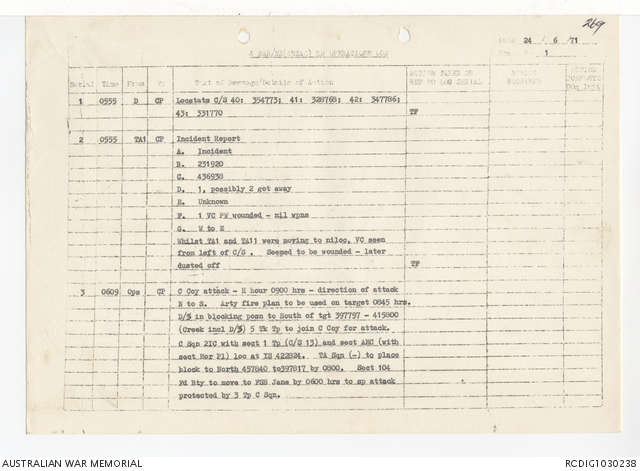 269
24 / 6 /71
1
Serial Time From To Text of Message/Details of Action
1 0555 D CP Locstats C/S 40: 354773; 41: 328768; 42: 347786;
43: 331770 TF
2 0555 TA1 CP Incident Report
A. Incident
B. 231920
C. 436938
D. 1, possibly 2 got away
E. Unknown
F. 1 VC PW wounded - nil wpns
G. W to E
Whilst TA1 and TA11 were moving to niloc. VC seen
from left of C/S . Seemed to be wounded - later
dusted off TF
3 0609 Ops CP C Coy attack - H hour 0900 hrs - direction of attack
N to S. Arty fire plan to be used on target 0845 hrs.
D/3 in blocking posn to South of tgt 397797 - 415800
(Creek incl D/3) 5 Tk Tp to join C Coy for attack.
C Sqn 2IC with sect 1 Tp (C/S 13) and sect AHC (with
sect Mor Pl) loc at YS 422824. TA Sqn (-) to place
block to North 457840 to397817 by 0800. Sect 104
Fd Bty to move to FSB Jane by 0600 hrs to sp attack
protected by 3 Tp C Sqn.
AUSTRALIAN WAR MEMORIAL
RCDIG1030238